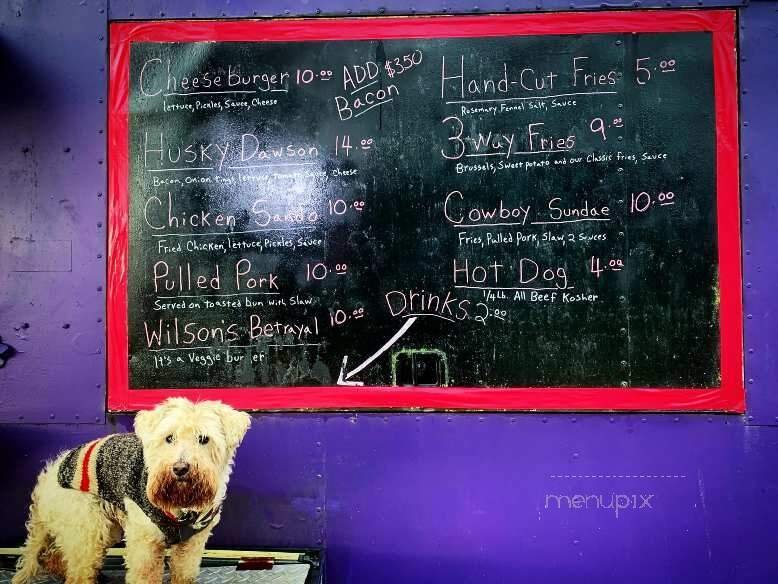 Cheeseburger 10.00 ADD $3.50 Bacon
lettuce, Pickles, Sauce, Cheese
Husky Dawson 14.00
Bacon, Onion rings, lettuce, tomato, Sauce, Cheese
Chicken Sando 10.00
Fried Chicken, lettuce, Pickles, Sauce
Pulled Pork 10.00
Served on toasted bun with Slaw
Wilson's Betrayal 10.00
It's a Veggie bur er
Drinks 2.00
Hand-Cut Fries 5.00
Rosemary Fennel Salt, Sauce
3 Way Fries 9.00
Brussels, Sweet potato and our Classic fries, Sauce
Cowboy Sundae 10.00
Fries, Pulled Pork, Slaw, 2 Sauces
Hot Dog 4.00
1/4 Lb. All Beef Kosher
menupix